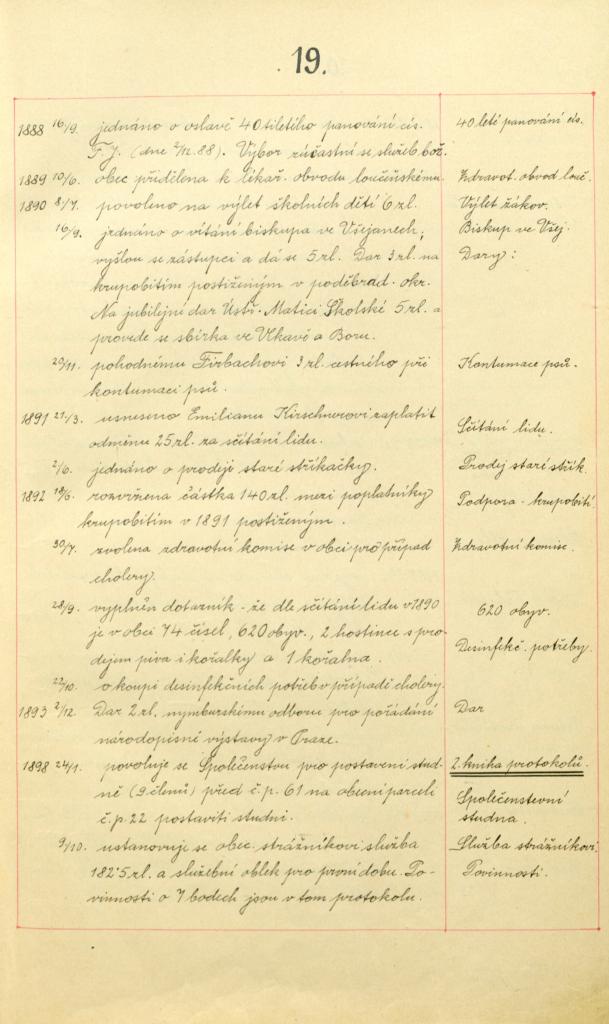 19.
1888 16/9. jednáno o oslavě 40tiletého panování cís. 40 leté panování cís.
F. J. (dne 2/12. 88). Výbor zúčastní se služeb bož.
1889 10/6. obec přidělena k lékař. obvodu loučeňskému. Zdravot. obvod louč.
1890 8/7. povoleno na výlet školních dětí 6 zl. Výlet žáků.
16/9. jednáno o vítání biskupa ve Všejanech; Biskup ve Všej.
vyšlou se zástupci a dá se 5 zl. Dar 3 zl. na Dary:
krupobitím postiženým v poděbrad. okr.
Na jubilejní dar Ústř. Matici Školské 5 zl. a
provede se sbírka ve Vlkavě a Boru.
20/11. pohodnému Firbachovi 3 zl. cestného při Kontumace psů.
kontumaci psů.
1891 21/3. usneseno Emilianu Kirschnerovi zaplatit
odměnu 25 zl. za sčítání lidu. Sčítání lidu.
2/6. jednáno o prodeji staré stříkačky. Prodej staré střík.
1892 19/6. rozvržena částka 140 zl. mezi poplatníky Podpora - krupobití
krupobitím v 1891 postiženým.
30/7. zvolena zdravotní komise v obci pro případ Zdravotní komise.
cholery.
28/9. vyplněn dotazník - že dle sčítání lidu v 1890 620 obyv.
je v obci 74 čísel, 620 obyv., 2 hostince s pro-
dejem piva i kořalky a 1 kořalna. Desinfekč. potřeby.
22/10. o koupi desinfekčních potřeb v případě cholery.
1893 2/12. Dar 2 zl. nymburskému odboru pro pořádání Dar
národopisné výstavy v Praze.
1898 24/1. povoluje se Společenstvu pro postavení stud- 2. kniha protokolů.
ně (9 členů) před č.p. 61 na obecní parceli Společenstevní
č.p. 22 postaviti studni. studna.
9/10. ustanovuje se obec. strážníkovi služba Služba strážníkovi.
182·5 zl. a služební oblek pro první dobu. Po- Povinnosti.
vinnosti o 7 bodech jsou v tom protokolu.